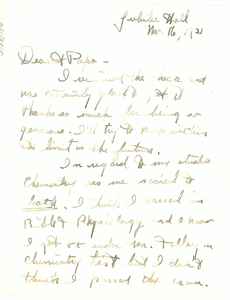 Jubilee Hall
Nov. 16, 1921
Dear Papa -
I received the check and
was certainly glad to get it.
Thanks so much for being so
generous. I'll try to keep within
the limit in the future.
In regard to my studies
Chemistry has me scared to
I think I passed in
Bible & Physiology and I know
I got under Mr. Talley in
chemistry test but I don't
think I passed the exam.